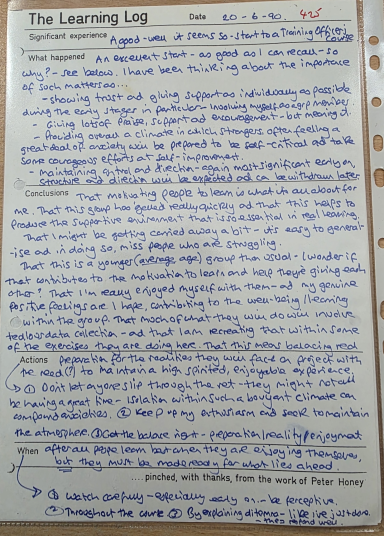 The Learning Log Date 20-6-90. 425
Significant experience A good - well it seems so - start to a Training Officers
Course
What happened An excellent start - as good as I can recall - so
why? - see below. I have been thinking about the importance
of such matters as...
- showing trust and giving support as individually as possible
during the early stages in particular - involving myself as a grp member.
- Giving lots of praise, support and encouragement - but meaning it.
- Providing overall a climate in which strangers, often feeling a
great deal of anxiety will be prepared to be self-critical and take
some courageous efforts at self-improvement.
- maintaining control and direction - again most significant early on,
structure and direction will be expected and can be withdrawn later
Conclusions That motivating people to learn is what it's all about for
me. That this group has gelled really quickly and that this helps to
produce the supportive environment that is so essential in real learning.
That I might be getting carried away a bit - it's easy to general-
ise and in doing so, miss people who are struggling.
That this is a younger (average age) group than usual - I wonder if
that contributes to the motivation to learn and help they're giving each
other? That I'm really enjoyed myself with them - and my genuine
positive feelings are I hope, contributing to the well-being/learning
within the group. That much of what they will do will involve
tedious data collection - and that I am recreating that within some
of the exercises they are doing here. That this means balancing real
Actions preparation for the realities they will face on project with
the need(?) to maintain a high spirited, enjoyable experience.
① Don't let anyone slip through the net - they might not all
be having a great time - Isolation within such a buoyant climate can
compound anxieties. ② Keep up my enthusiasm and seek to maintain
the atmosphere. ③ Get the balance right - preparation/reality/enjoyment
When after all people learn best when they are enjoying themselves,
but they must be made ready for what lies ahead.
....pinched, with thanks, from the work of Peter Honey
① Watch carefully - especially early on - be perceptive.
② Throughout the course ③ By explaining dilemma - like I've just done.
- they respond well.